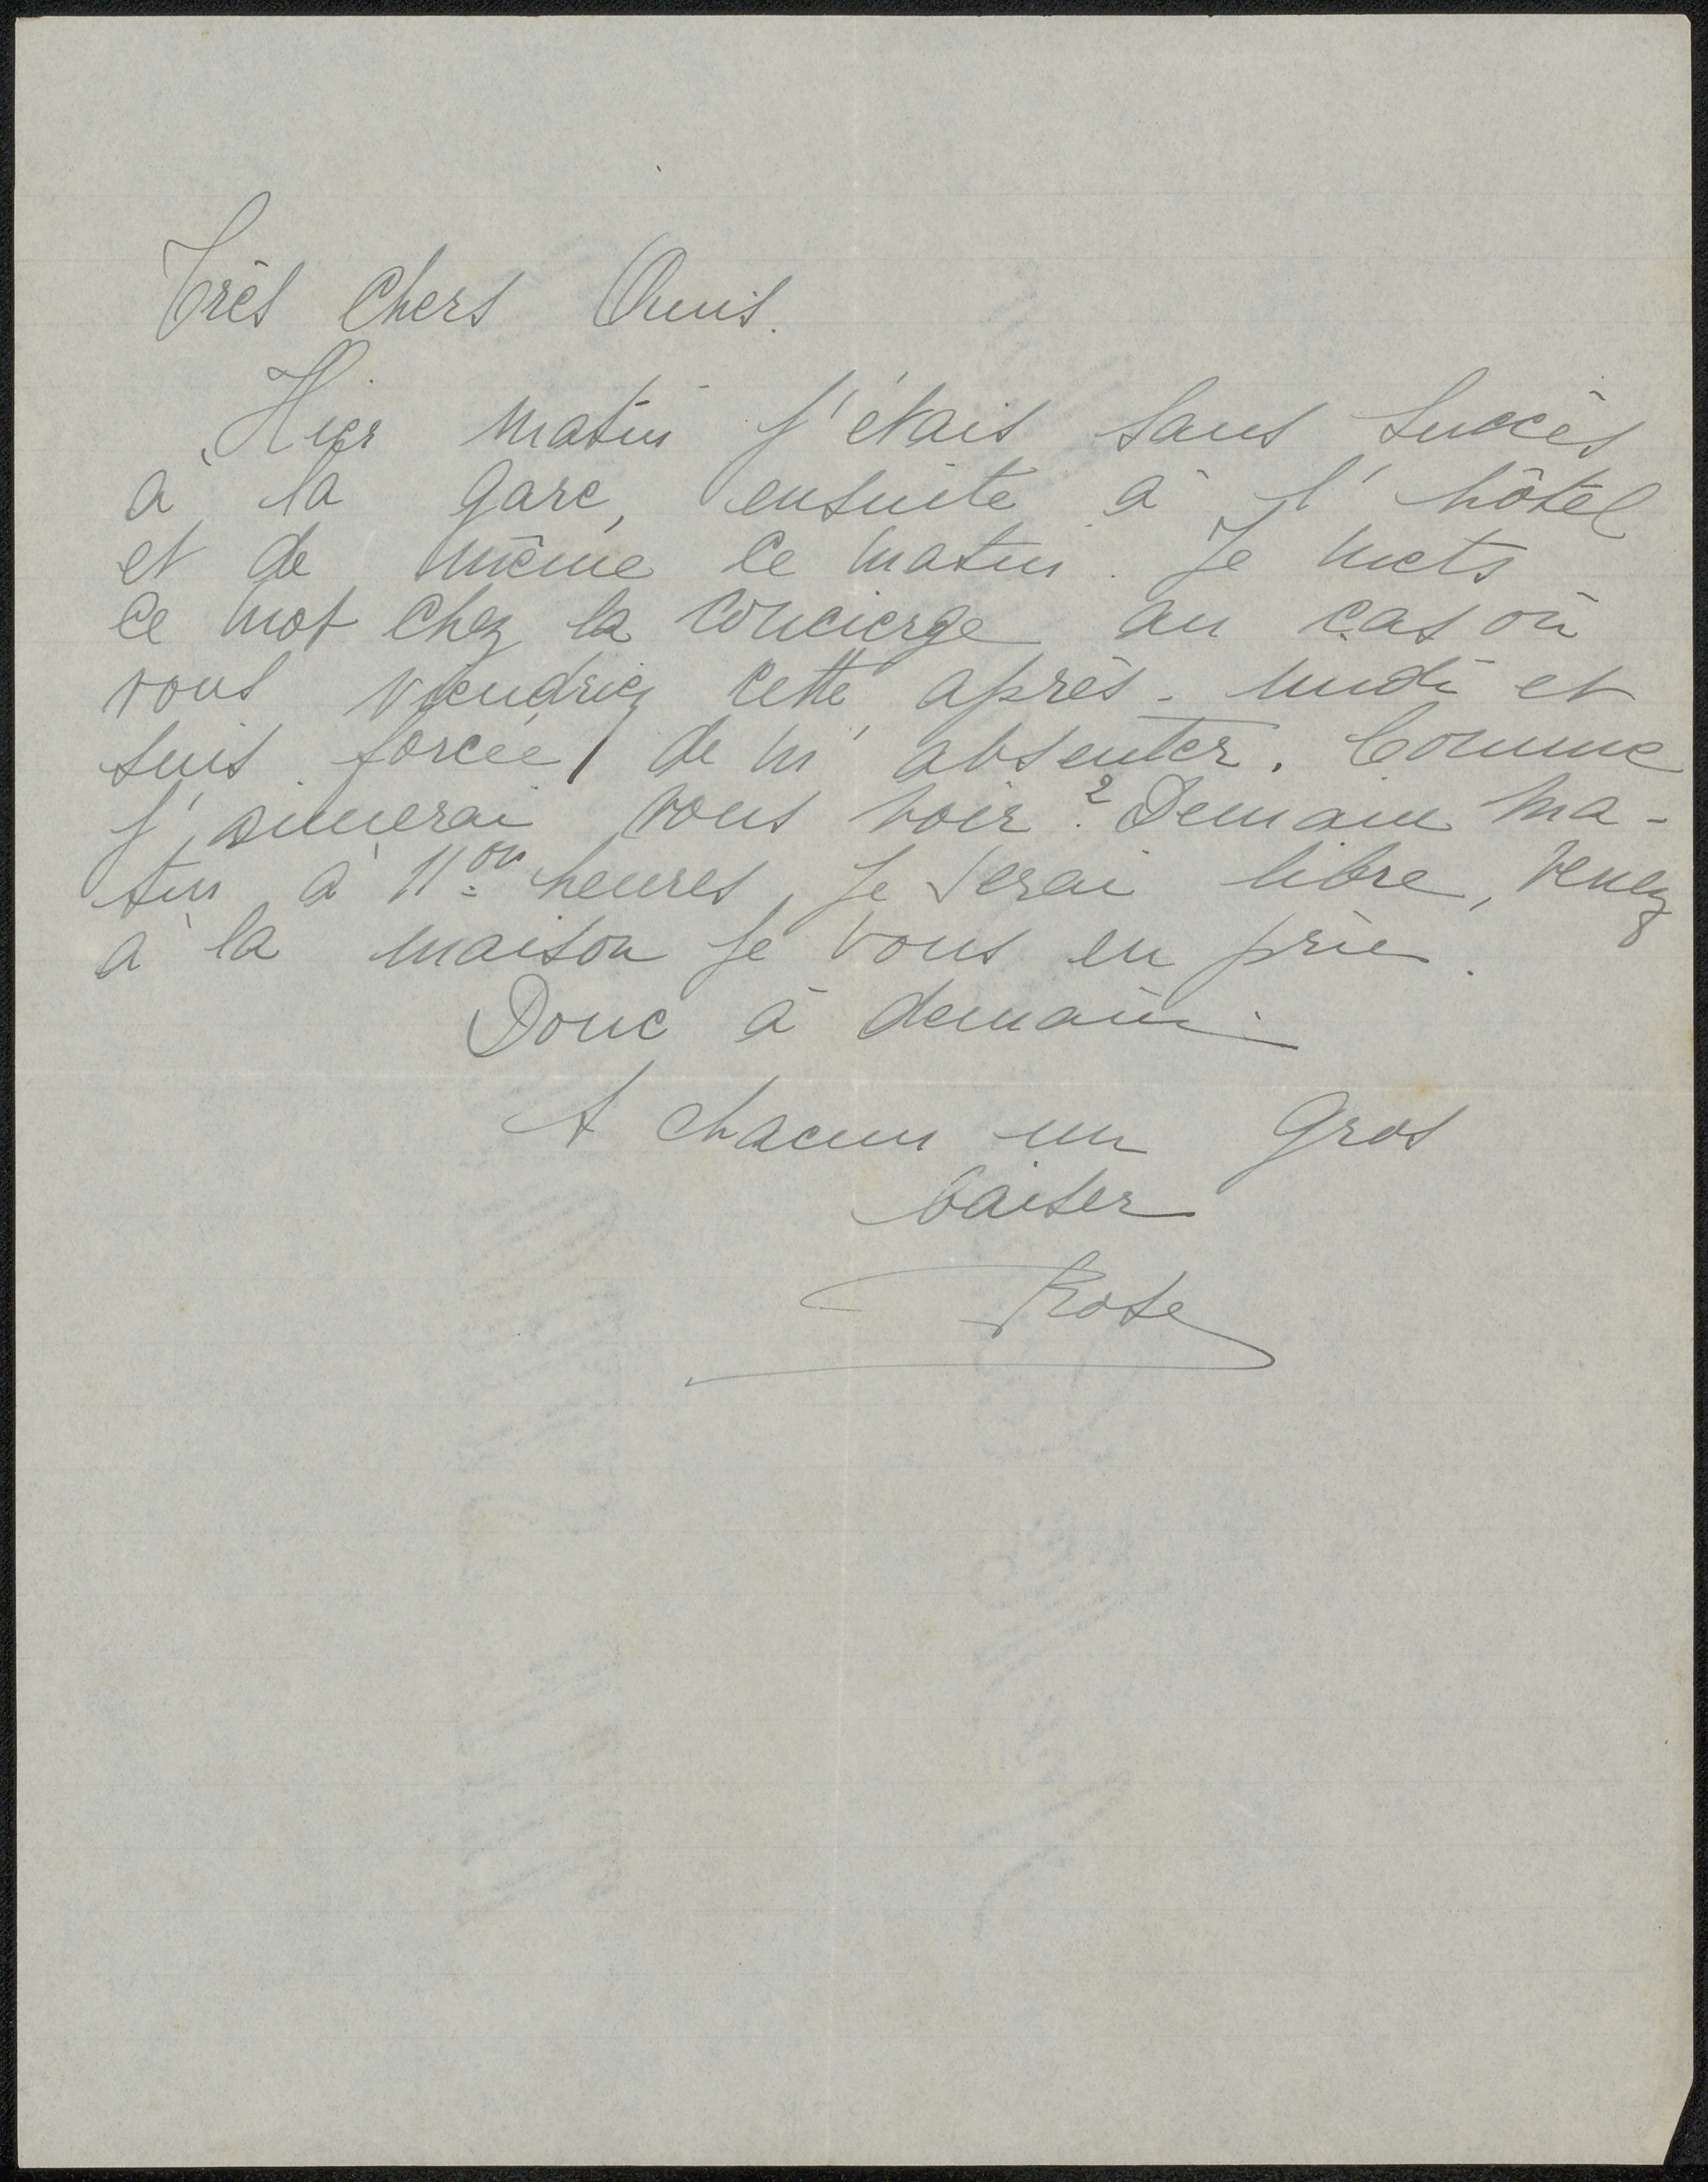 Très Chers Amis.
Hier matin j'étais sans succès
à la gare, ensuite à l'hôtel
et de même ce matin. Je mets
ce mot chez la concierge au cas où
vous viendriez cette après-midi et
suis forcée de m'absenter. Comme
j'aimerai vous voir? Demain ma-
tin à 11 heures je serai libre, venez
à la maison je vous en prie.
Donc à demain.
A chacun un gros
baiser
Rose